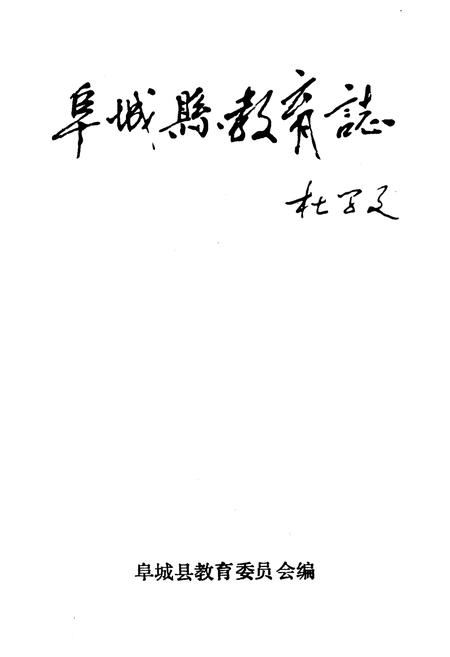 阜城縣教育誌
杜
阜城县教育委员会编